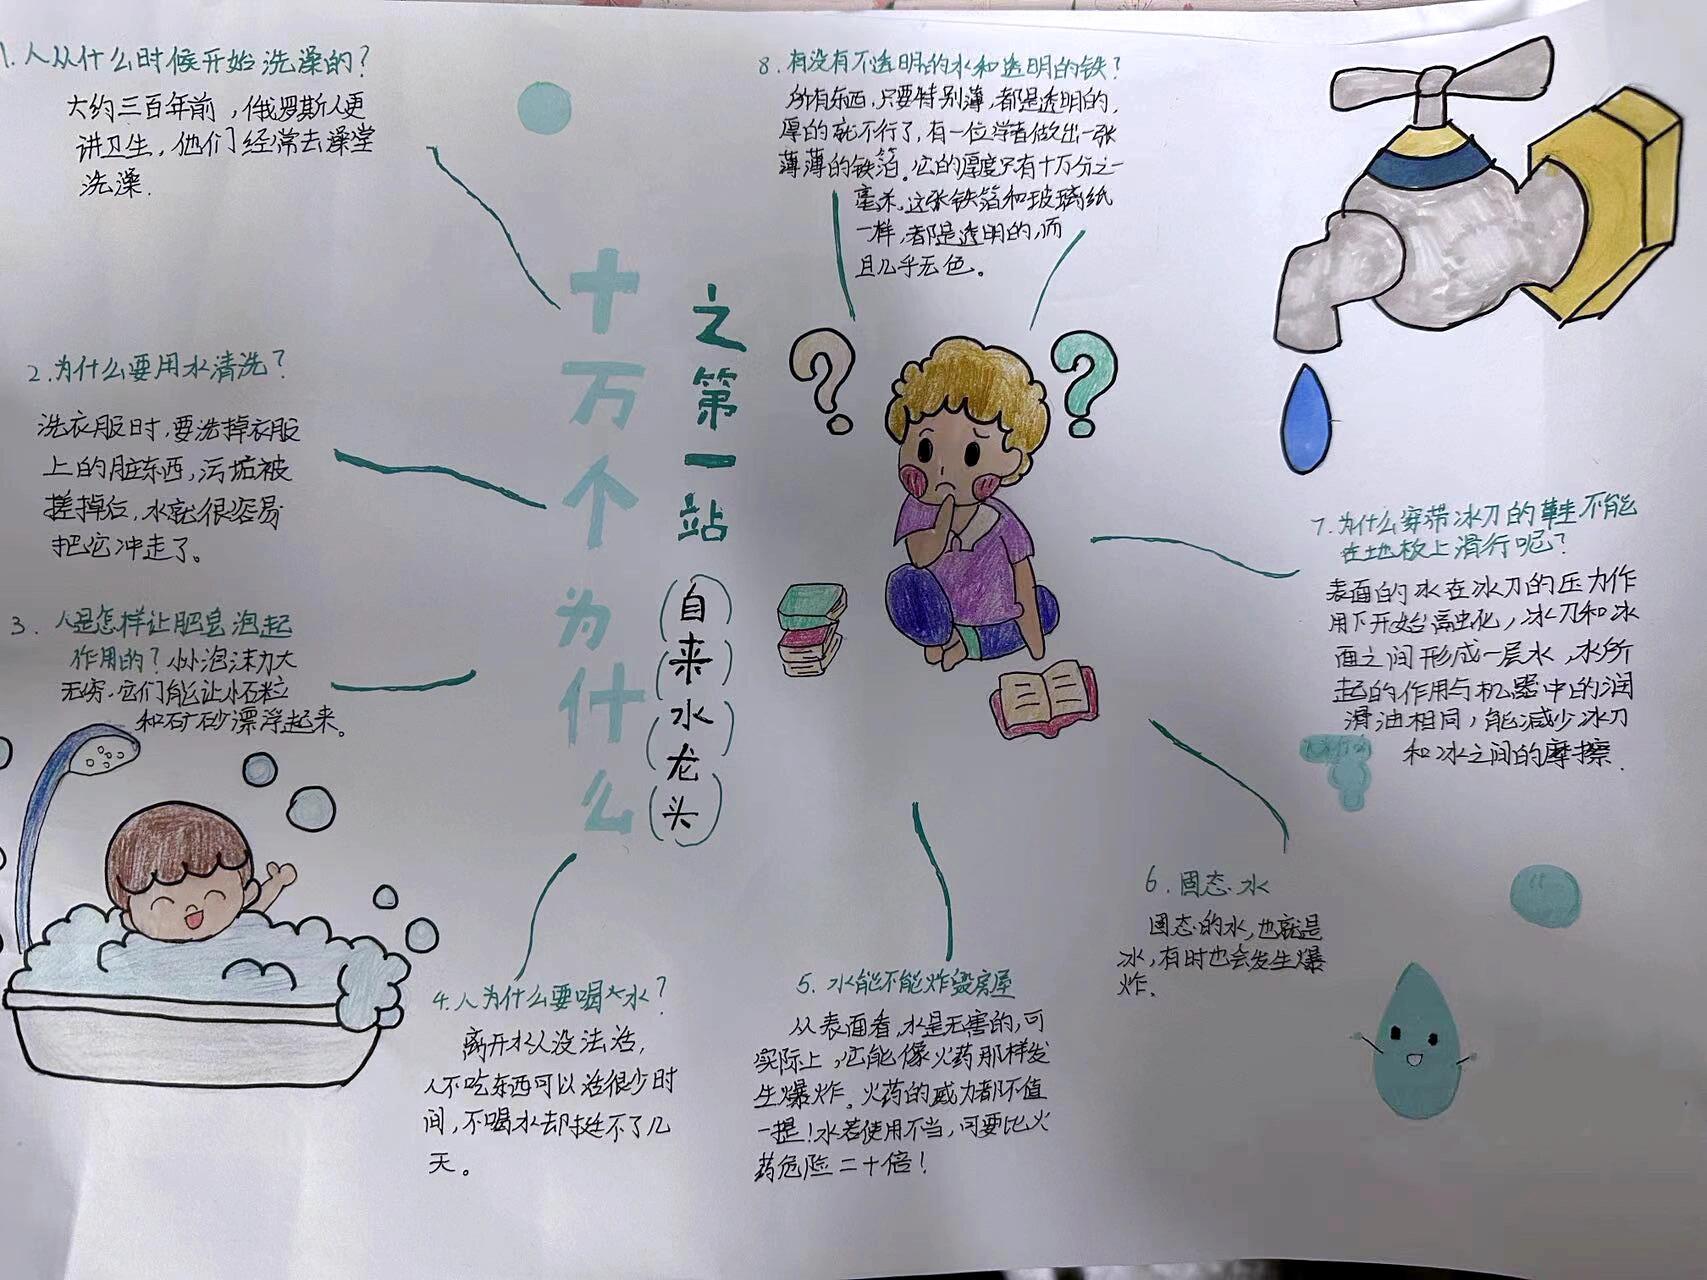 十万个为什么
之第一站
(自来水龙头)
1.人从什么时候开始洗澡的?
大约三百年前,俄罗斯人更
讲卫生,他们经常去澡堂
洗澡.
2.为什么要用水清洗?
洗衣服时,要洗掉衣服
上的脏东西,污垢被
搓掉后,水就很容易
把它冲走了。
3.人是怎样让肥皂泡起
作用的?小小泡沫力大
无穷.它们能让小石粒
和矿砂漂浮起来。
4.人为什么要喝水?
离开水人没法活,
人不吃东西可以活很少时
间,不喝水却挺不了几
天。
5.水能不能炸毁房屋
从表面看,水是无害的,可
实际上,它能像火药那样发
生爆炸。火药的威力都不值
一提!水若使用不当,可要比火
药危险二十倍!
6.固态水
固态的水,也就是
冰,有时也会发生爆
炸.
7.为什么穿带冰刀的鞋不能
在地板上滑行呢?
表面的冰在冰刀的压力作
用下开始融化,冰刀和冰
面之间形成一层水,水所
起的作用与机器中的润
滑油相同,能减少冰刀
和冰之间的摩擦.
8.有没有不透明的水和透明的铁?
所有东西,只要特别薄,都是透明的,
厚的就不行了,有一位学者做出一张
薄薄的铁箔.它的厚度只有十万分之一
毫米,这张铁箔和玻璃纸
一样,都是透明的,而
且几乎无色。